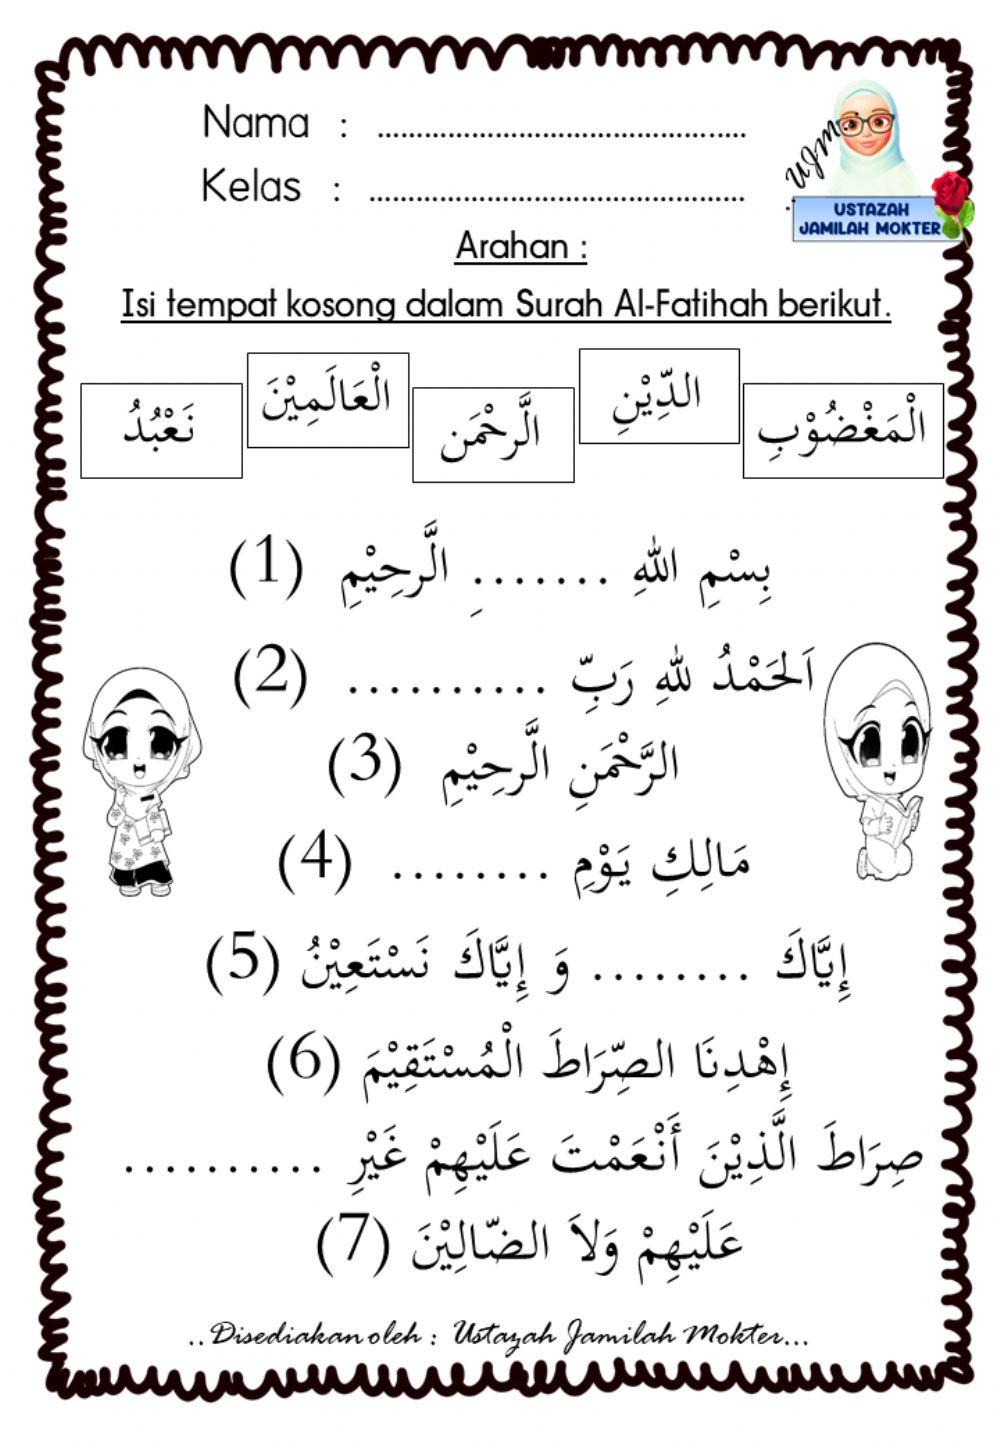 Nama : ................................................
Kelas : ................................................
UJM
USTAZAH
JAMILAH MOKTER
Arahan :
Isi tempat kosong dalam Surah Al-Fatihah berikut.
الْمَغْضُوْبِ
الدِّيْنِ
الَّرحْمَن
الْعَالَمِيْنَ
نَعْبُدُ
بِسْمِ اللهِ .......ِ الَّرحِيْمِ (1)
اَلحَمْدُ للهِ رَبِّ .......... (2)
الرَّحْمَنِ الَّرحِيْمِ (3)
مَالِكِ يَوْمِ ........ (4)
إِيَّاكَ ........ وَ إِيَّاكَ نَسْتَعِيْنُ (5)
إِهْدِنَا الصِّرَاطَ الْمُسْتَقِيْمَ (6)
صِرَاطَ الَّذِيْنَ أَنْعَمْتَ عَلَيْهِمْ غَيْرِ ..........
عَلَيْهِمْ وَلاَ الضّالِيْنَ (7)
..Disediakan oleh : Ustazah Jamilah Mokter...